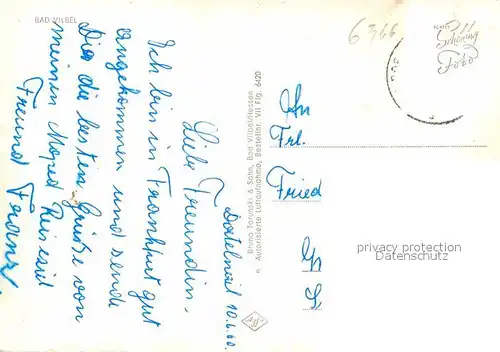 BAD VILBEL
6366
Schöning
Foto
Dortelweil 10.6.60.
Liebe Freundin.
Ich bin in Frankfurt gut
angekommen und sende
Dir die besten Grüße von
meinen Moped Reiseziel
Freund Franz
Bruno Torunski & Sohn, Bad Vilbel/Hessen
Autorisierte Luftaufnahme, Bestellnr. VII Flg. 6420
An
Frl.
Fried
privacy protection
Datenschutz